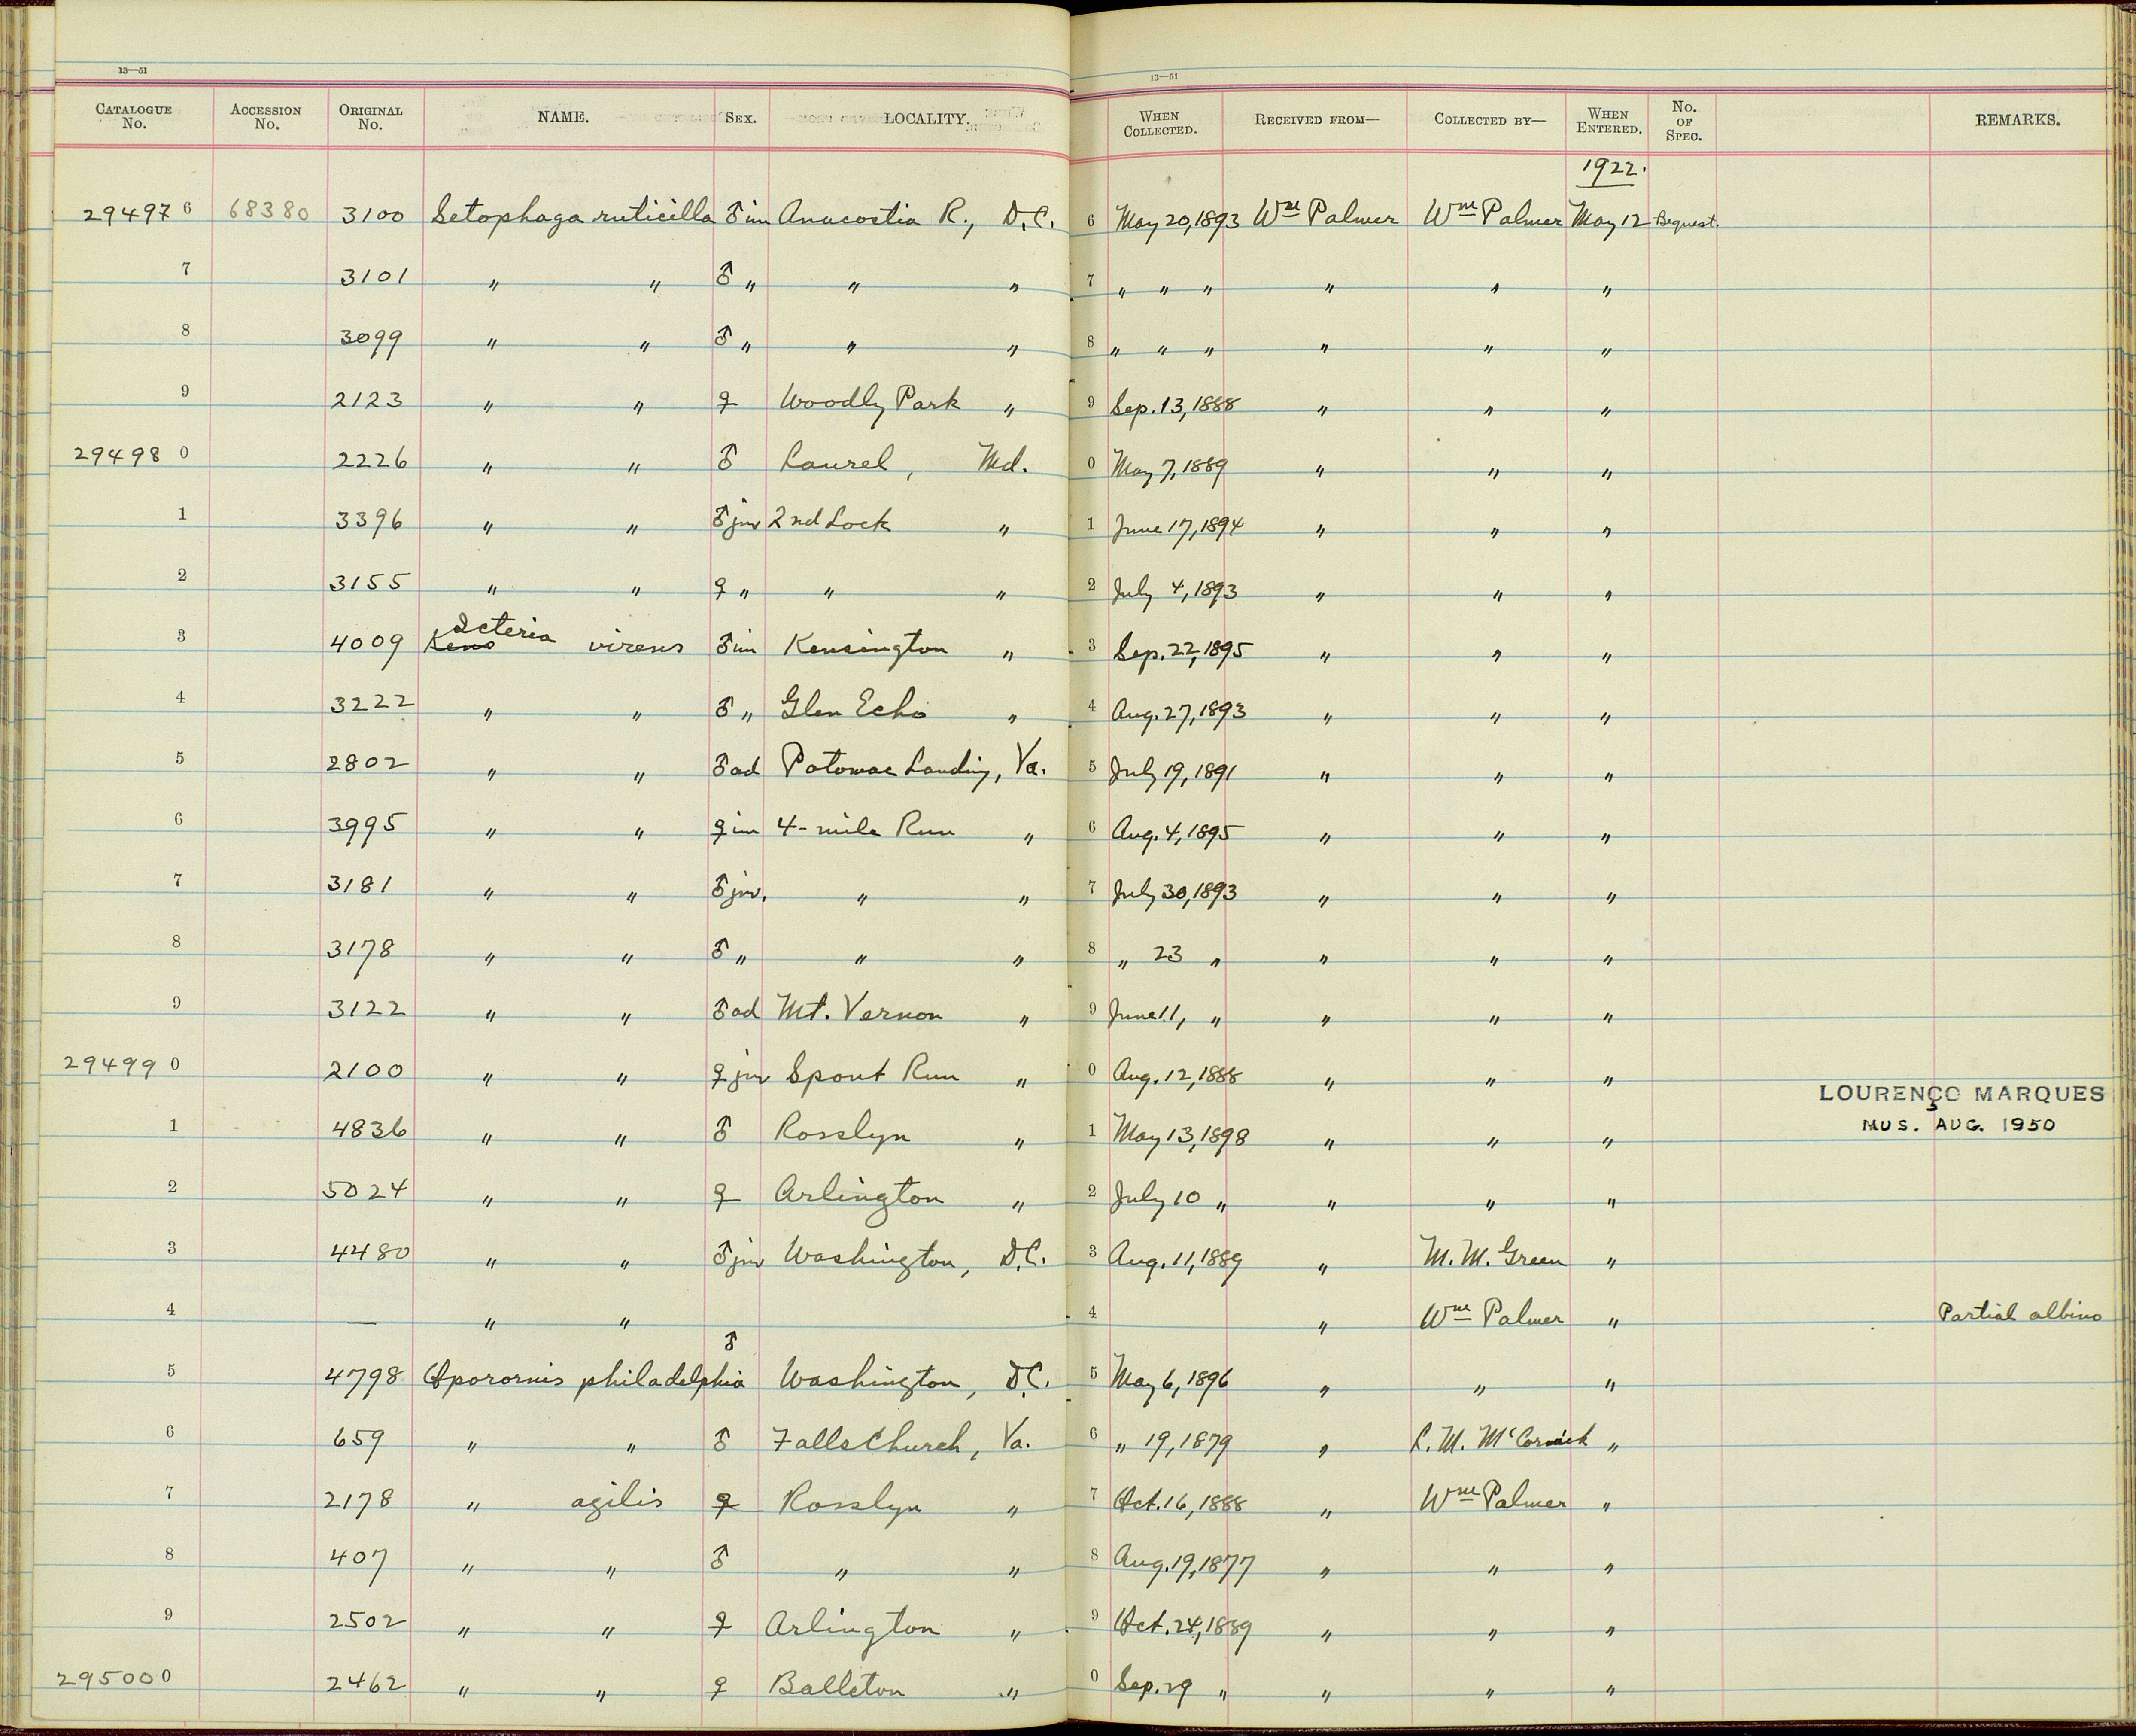 13—51 13—51
CATALOGUE No. ACCESSION No. ORIGINAL No. NAME. SEX. LOCALITY. WHEN COLLECTED. RECEIVED FROM— COLLECTED BY— WHEN ENTERED. No. OF SPEC. REMARKS.
1922.
29497 6 68380 3100 Setophaga ruticilla ♂ im Anacostia R., D.C. 6 May 20, 1893 Wm Palmer Wm Palmer May 12 Bequest.
7 3101 " " ♂ " " " 7 " " " " " "
8 3099 " " ♂ " " " 8 " " " " " "
9 2123 " " ♀ Woodly Park " 9 Sep. 13, 1888 " " "
29498 0 2226 " " ♂ Laurel, Md. 0 May 7, 1889 " " "
1 3396 " " ♂ juv 2nd Lock " 1 June 17, 1894 " " "
2 3155 " " ♀ " " " 2 July 4, 1893 " " "
3 4009 Keno Icteria virens ♂ im Kensington " 3 Sep. 22, 1895 " " "
4 3222 " " ♂ " Glen Echo " 4 Aug. 27, 1893 " " "
5 2802 " " ♂ ad Potomac Landing, Va. 5 July 19, 1891 " " "
6 3995 " " ♀ im 4-mile Run " 6 Aug. 4, 1895 " " "
7 3181 " " ♂ juv. " " 7 July 30, 1893 " " "
8 3178 " " ♂ " " " 8 " 23 " " " "
9 3122 " " ♂ ad Mt. Vernon " 9 June 11, " " " "
29499 0 2100 " " ♀ juv Spout Run " 0 Aug. 12, 1888 " " "
1 4836 " " ♂ Rosslyn " 1 May 13, 1898 " " " LOURENÇO MARQUES
MUS. AUG. 1950
2 5024 " " ♀ Arlington " 2 July 10 " " " "
3 4480 " " ♂ juv Washington, D.C. 3 Aug. 11, 1889 " M. M. Green "
4 — " " 4 " Wm Palmer " Partial albino
5 4798 Oporornis philadelphia ♂ Washington, D.C. 5 May 6, 1896 " " "
6 659 " " ♂ Falls Church, Va. 6 " 19, 1879 " L. M. McCormick "
7 2178 " agilis ♀ Rosslyn " 7 Oct. 16, 1888 " Wm Palmer "
8 407 " " ♂ " " 8 Aug. 19, 1877 " " "
9 2502 " " ♀ Arlington " 9 Oct. 24, 1889 " " "
29500 0 2462 " " ♀ Balleton " 0 Sep. 29 " " " "